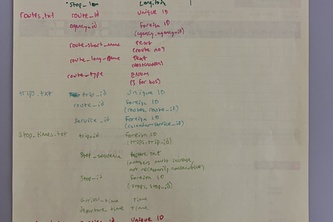 stop_lon
routes.txt route_id Unique ID
agency_id Foreign ID
(agency.agency_id)
route_short_name Text
(route no)
route_long_name Text
route_type Enum
(3 for bus)
trips.txt trip_id Unique ID
route_id Foreign ID
(routes.route_id)
service_id Foreign ID
(calendar.service_id)
stop_times.txt trip_id Foreign ID
(trips.trip_id)
stop_sequence
stop_id Foreign ID
(stops.stop_id)
arrival_time Time
departure_time Time
Unique ID